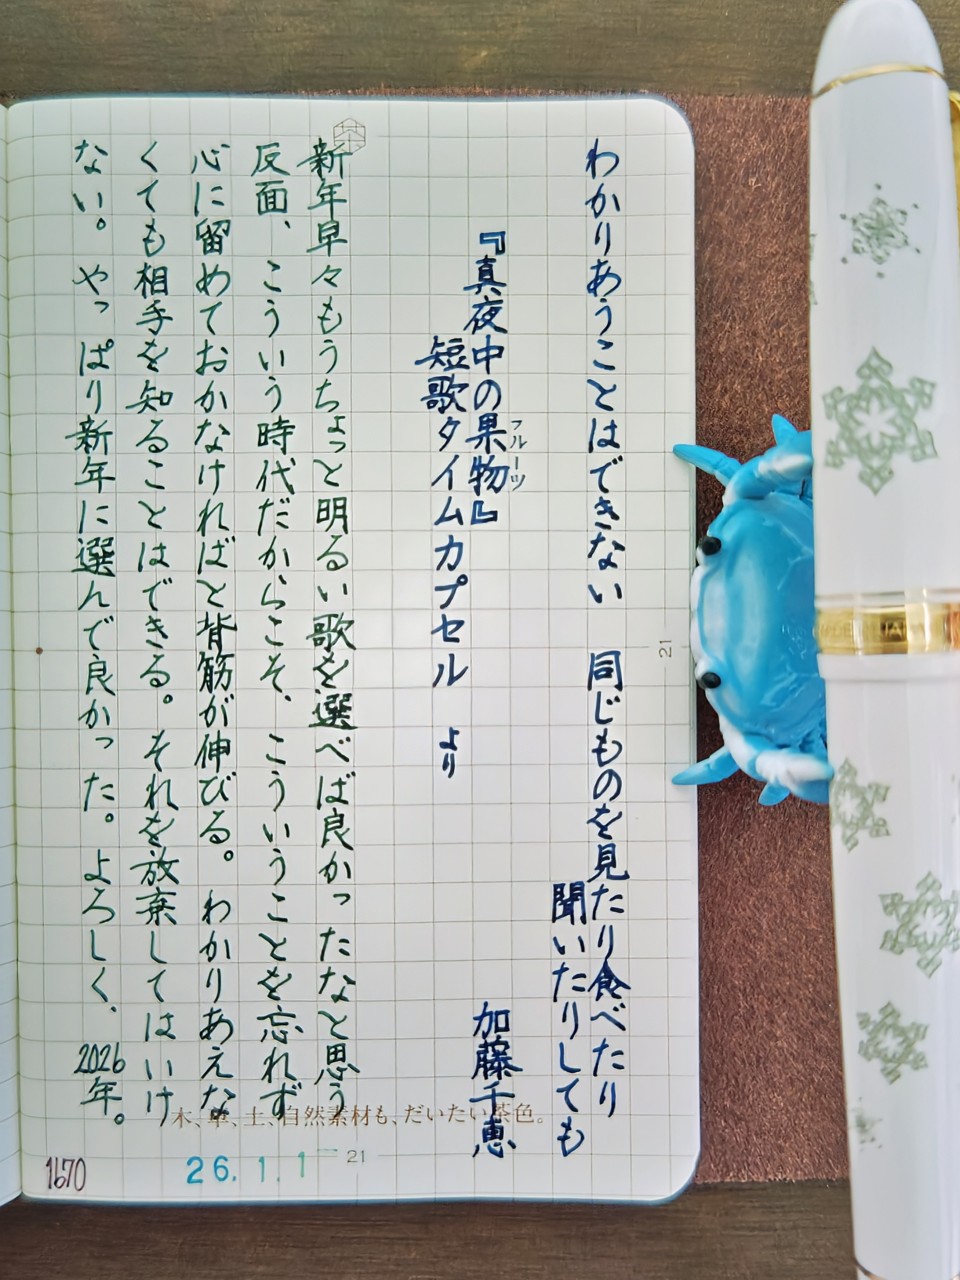 わかりあうことはできない　同じものを見たり食べたり
聞いたりしても
『真夜中の果物』
フルーツ
短歌タイムカプセル　より
加藤千恵
新年早々もうちょっと明るい歌を選べば良かったなと思う
反面、こういう時代だからこそ、こういうことを忘れず
心に留めておかなければと背筋が伸びる。わかりあえな
くても相手を知ることはできる。それを放棄してはいけ
ない。やっぱり新年に選んで良かった。よろしく、2026年。
木、革、土、自然素材も、だいたい茶色。
21
21
26.1.1
1670